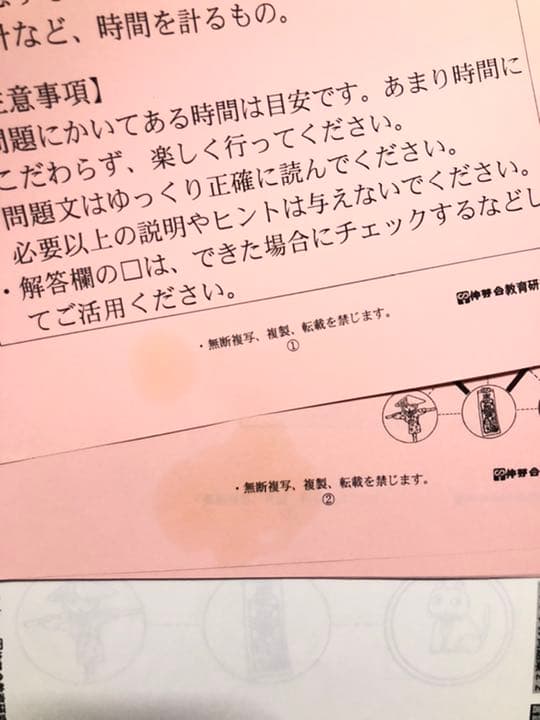 計など、時間を計るもの。
注意事項】
問題にかいてある時間は目安です。あまり時間に
こだわらず、楽しく行ってください。
問題文はゆっくり正確に読んでください。
必要以上の説明やヒントは与えないでください。
・解答欄の□は、できた場合にチェックするなどし
てご活用ください。
・無断複写、複製、転載を禁じます。
伸芽会教育研
①
・無断複写、複製、転載を禁じます。
伸芽会
②